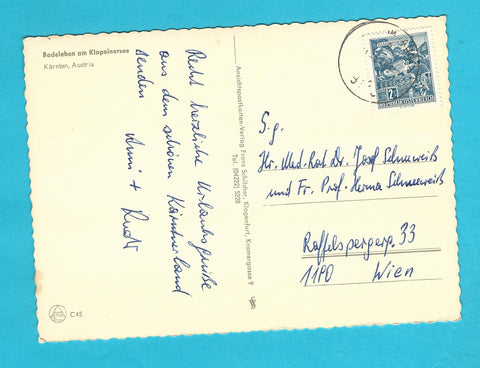 Badeleben am Klopeinersee
Kärnten, Austria
Recht herzliche Urlaubsgrüße
aus dem schönen Kärntnerland
senden Anni + Rudi
C 45
Ansichtspostkarten-Verlag Franz Schilcher, Klagenfurt, Kramergasse 9
Tel. (04222) 5228
REPUBLIK ÖSTERREICH
S.g.
Hr. Med. Rat Dr. Josef Schneeweiß
und Fr. Prof. Herma Schneeweiß
Raffelspergerg. 33
1190 Wien